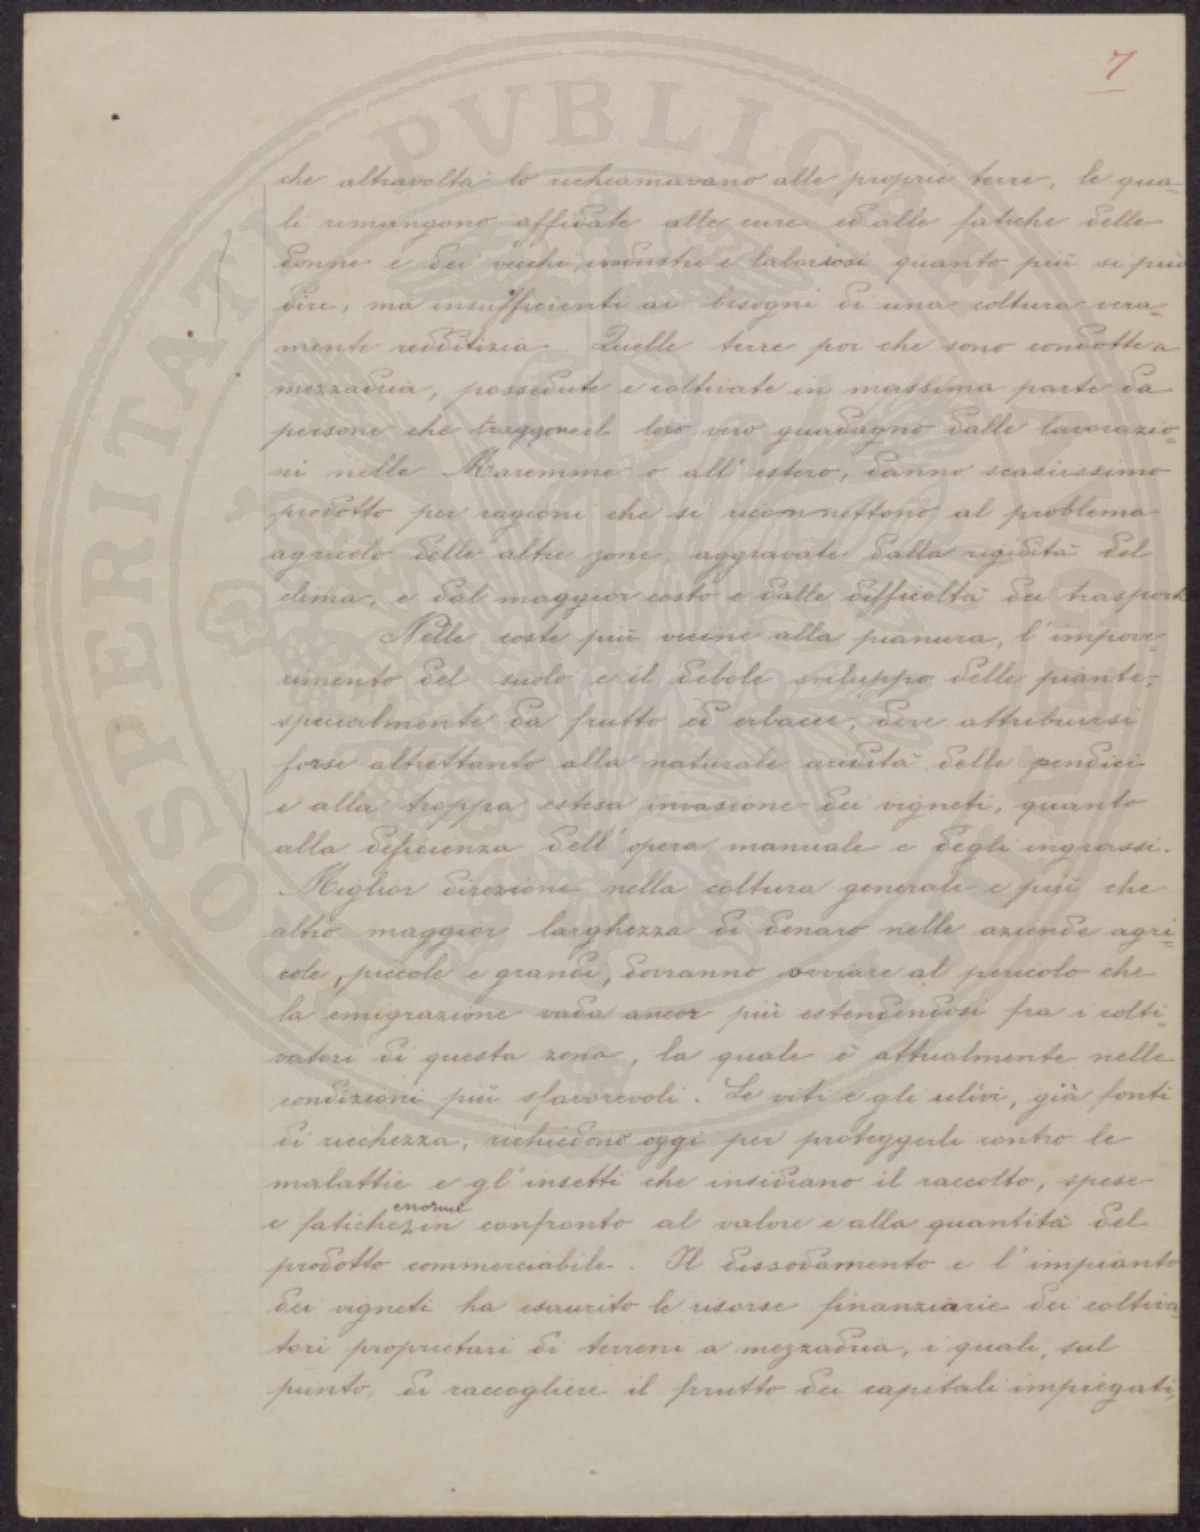 7
che altravolta lo richiamavano alle proprie terre, le qua=
li rimangono affidate alle cure ed alle fatiche delle
donne e dei vecchi, industri e laboriosi quanto più si può
dire, ma insufficienti ai bisogni di una coltura vera=
mente redditizia. Quelle terre poi che sono condotte a
mezzadria, possedute e coltivate in massima parte da
persone che traggono il loro vero guadagno dalle lavorazio=
ni nelle Maremme o all'estero, danno scasissimo
prodotto per ragioni che si riconnettono al problema
agricolo delle altre zone, aggravate dalla rigidità del
clima, e dal maggior costo e dalle difficoltà dei trasporti
Nelle coste più vicine alla pianura, l'impove=
rimento del suolo e il debole sviluppo delle piante,
specialmente da frutto ed erbacee, deve attribuirsi
forse altrettanto alla naturale aridità delle pendici
e alla troppa estesa invasione dei vigneti, quanto
alla deficienza dell'opera manuale e degli ingrassi.
Miglior direzione nella coltura generale e più che
altro maggior larghezza di denaro nelle aziende agri=
cole, piccole e grandi, dovranno ovviare al pericolo che
la emigrazione vada ancor più estendendosi fra i colti=
vatori di questa zona, la quale è attualmente nelle
condizioni più sfavorevoli. Le viti e gli ulivi, già fonti
di ricchezza, richiedono oggi per proteggerli contro le
malattie e gl'insetti che insidiano il raccolto, spese
enormi
e fatiche in confronto al valore e alla quantità del
prodotto commerciabile. Il dissodamento e l'impianto
dei vigneti ha esaurito le risorse finanziarie dei coltiva
tori proprietari di terreni a mezzadria, i quali, sul
punto di raccogliere il frutto dei capitali impiegati,
PROSPERITATI PVBLICAE